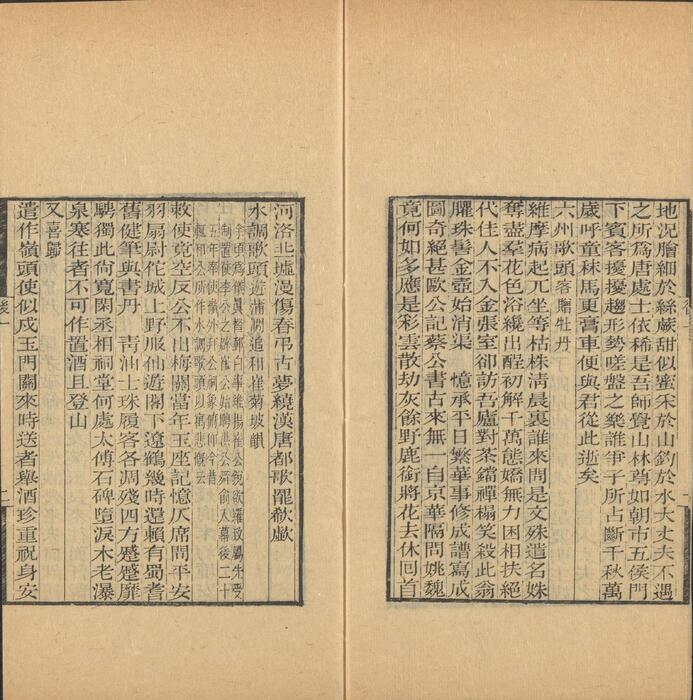 地況膾細於絲蕨甜似蜜采於山釣於水大丈夫不遇
之所爲唐處士依稀是吾師覺山林尊如朝市五侯門
下賓客擾擾趨形勢嗟盤之樂誰爭子所占斷千秋萬
歲呼童秣馬更膏車便與君從此逝矣
六州歌頭落贈牡丹
維摩病起兀坐等枯株清晨裏誰來問是文殊遣名姝
奪盡羣花色浴纔出酲初解千萬態嬌無力困相扶絕
代佳人不入金張室卻訪吾廬對茶鐺禪榻笑殺此翁
臞珠髻金壺始消渠　憶承平日繁華事修成譜寫成
圖奇絕甚歐公記蔡公書古來無一自京華隔問姚魏
竟何如多應是彩雲散劫灰餘野鹿銜將花去休回首
河洛丘墟漫傷春弔古夢繞漢唐都歌罷欷歔
水調歌頭遊蒲澗追和崔菊坡韻
敕使竟空反公不出梅關當年玉座記憶仄席問平安
羽扇尉佗城上野服仙遊閣下遼鶴幾時還賴有蜀耆
舊健筆與書丹　靑油士珠履客各凋殘四方蹙蹙靡
騁獨此尙寬閑丞相祠堂何處太傅石碑墮淚木老瀑
泉寒往者不可作置酒且登山
又喜歸
遣作嶺頭使似戍玉門關來時送者舉酒珍重祝身安
後一